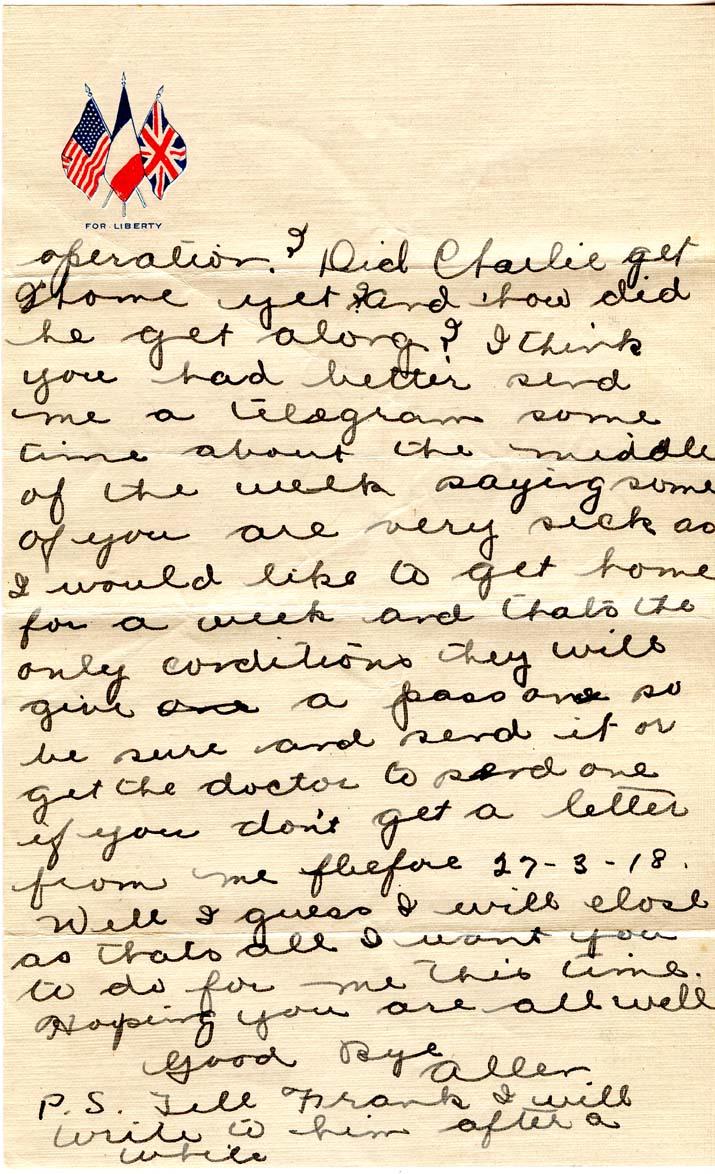 FOR LIBERTY
operation.? Did Charlie get
home yet? And how did
he get along? I think
you had better send
me a telegram some
time about the middle
of the week saying some
of you are very sick as
I would like to get home
for a week and thats the
only conditions they will
give a pass on so
be sure and send it or
get the doctor to send one
if you don't get a letter
from me before 27-3-18.
Well I guess I will close
as thats all I want you
to do for me this time.
Hoping you are all well
Good Bye
Allen
P.S. Tell Frank I will
write to him after a
while